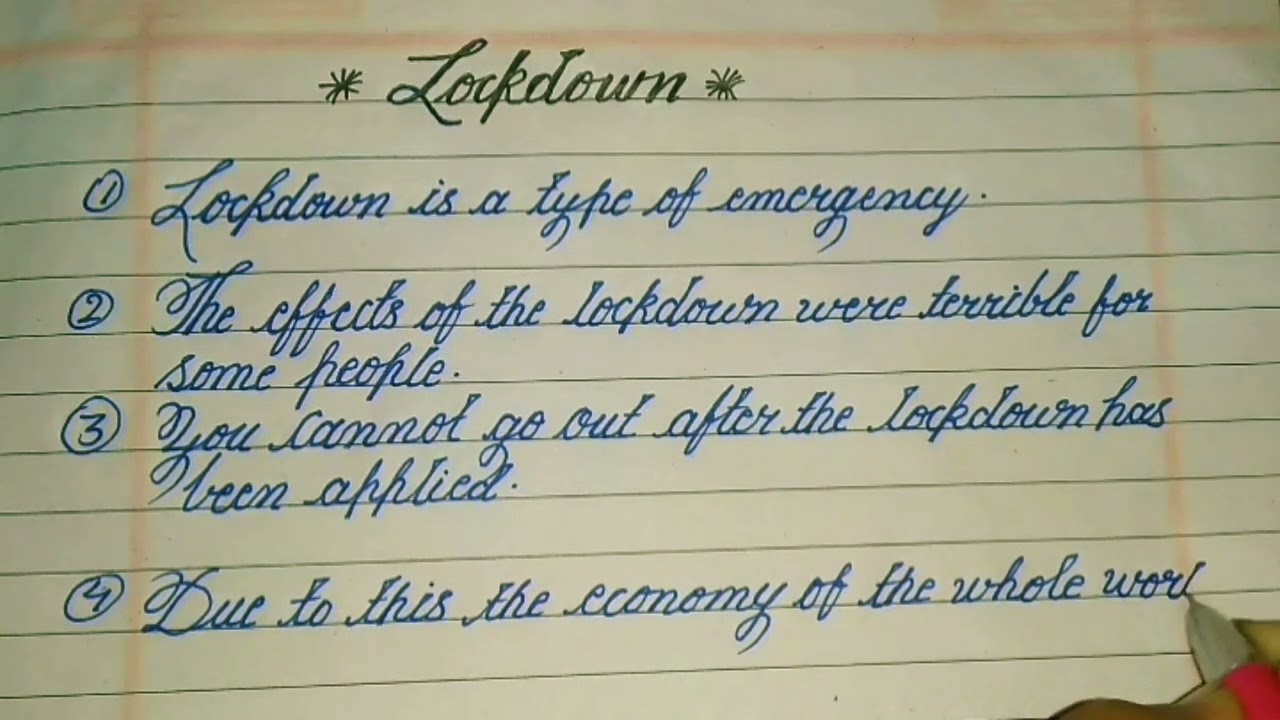 * Lockdown *
① Lockdown is a type of emergency.
② The effects of the lockdown were terrible for
some people.
③ You cannot go out after the lockdown has
been applied.
④ Due to this the economy of the whole worl